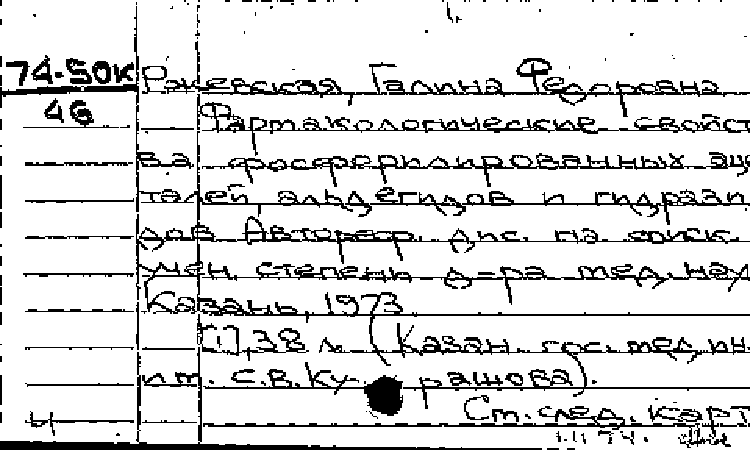 74-50К Ракевская, Галина Федоровна
46 Фармакологические свойст
ва фосфорилированных аце
талей, альдегидов и гидрази
дов Автореф. дис. на соиск.
учен. степени д-ра мед. нау
Казань, 1973
[1], 38 л. (Казан. гос. мед. ин-
им. С.В. Ку рашова).
Ст. след. карт
1.11 74.